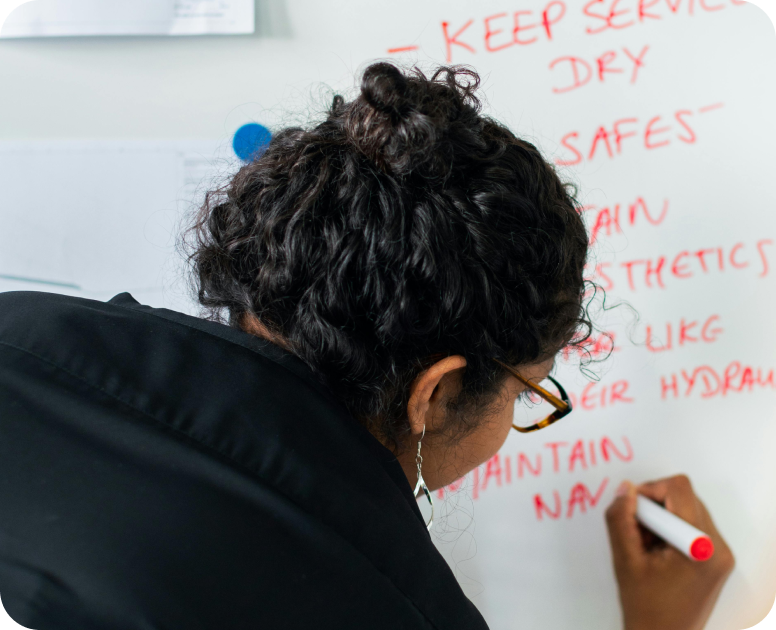 - KEEP SERVIC
DRY
SAFES-
TAIN
STHETICS
LIKG
EIR HYDRAU
MAINTAIN
NAV